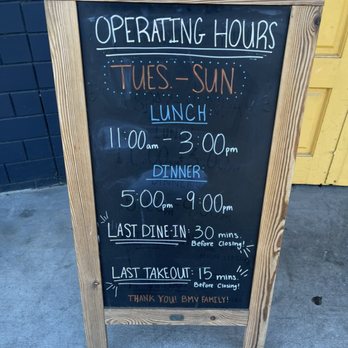 OPERATING HOURS
TUES. - SUN
LUNCH:
11:00am - 3:00pm
DINNER:
5:00pm - 9:00pm
LAST DINE-IN: 30 mins.
Before Closing!
LAST TAKEOUT: 15 mins
Before Closing!
THANK YOU! BMV FAMILY!